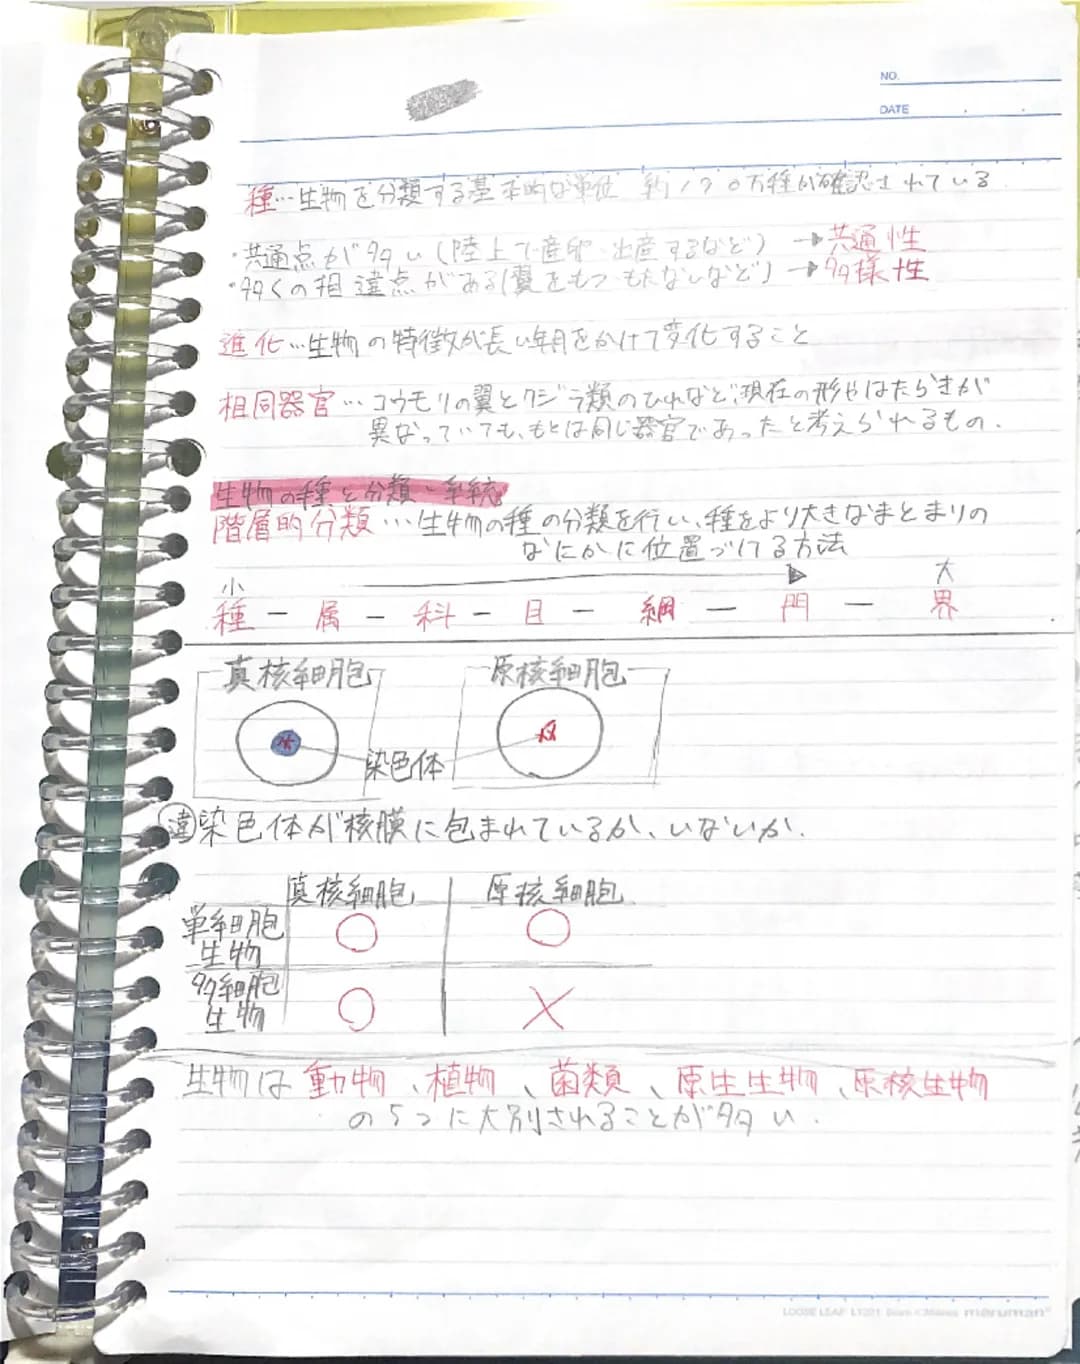 NO.
DATE
種…生物を分類する基本的な単位 約190万種が確認されている
・共通点が多い(陸上で産卵・出産するなど) → 共通性
・多くの相違点がある(翼をもつ・もたないなど) → 多様性
進化…生物の特徴が長い年月をかけて変化すること
相同器官…コウモリの翼とクジラ類のひれなど、現在の形やはたらきが
異なっていても、もとは同じ器官であったと考えられるもの.
生物の種と分類・系統
階層的分類…生物の種の分類を行い、種をより大きなまとまりの
なにかに位置づける方法
小 大
種 ー 属 ー 科 ー 目 ー 綱 ー 門 ー 界
真核細胞 原核細胞
染色体
違 染色体が核膜に包まれているか、いないか.
真核細胞 原核細胞
単細胞
生物 ○ ○
多細胞
生物 ○ ×
生物は 動物、植物、菌類、原生生物、原核生物
の5つに大別されることが多い.
LOOSE LEAF maruman